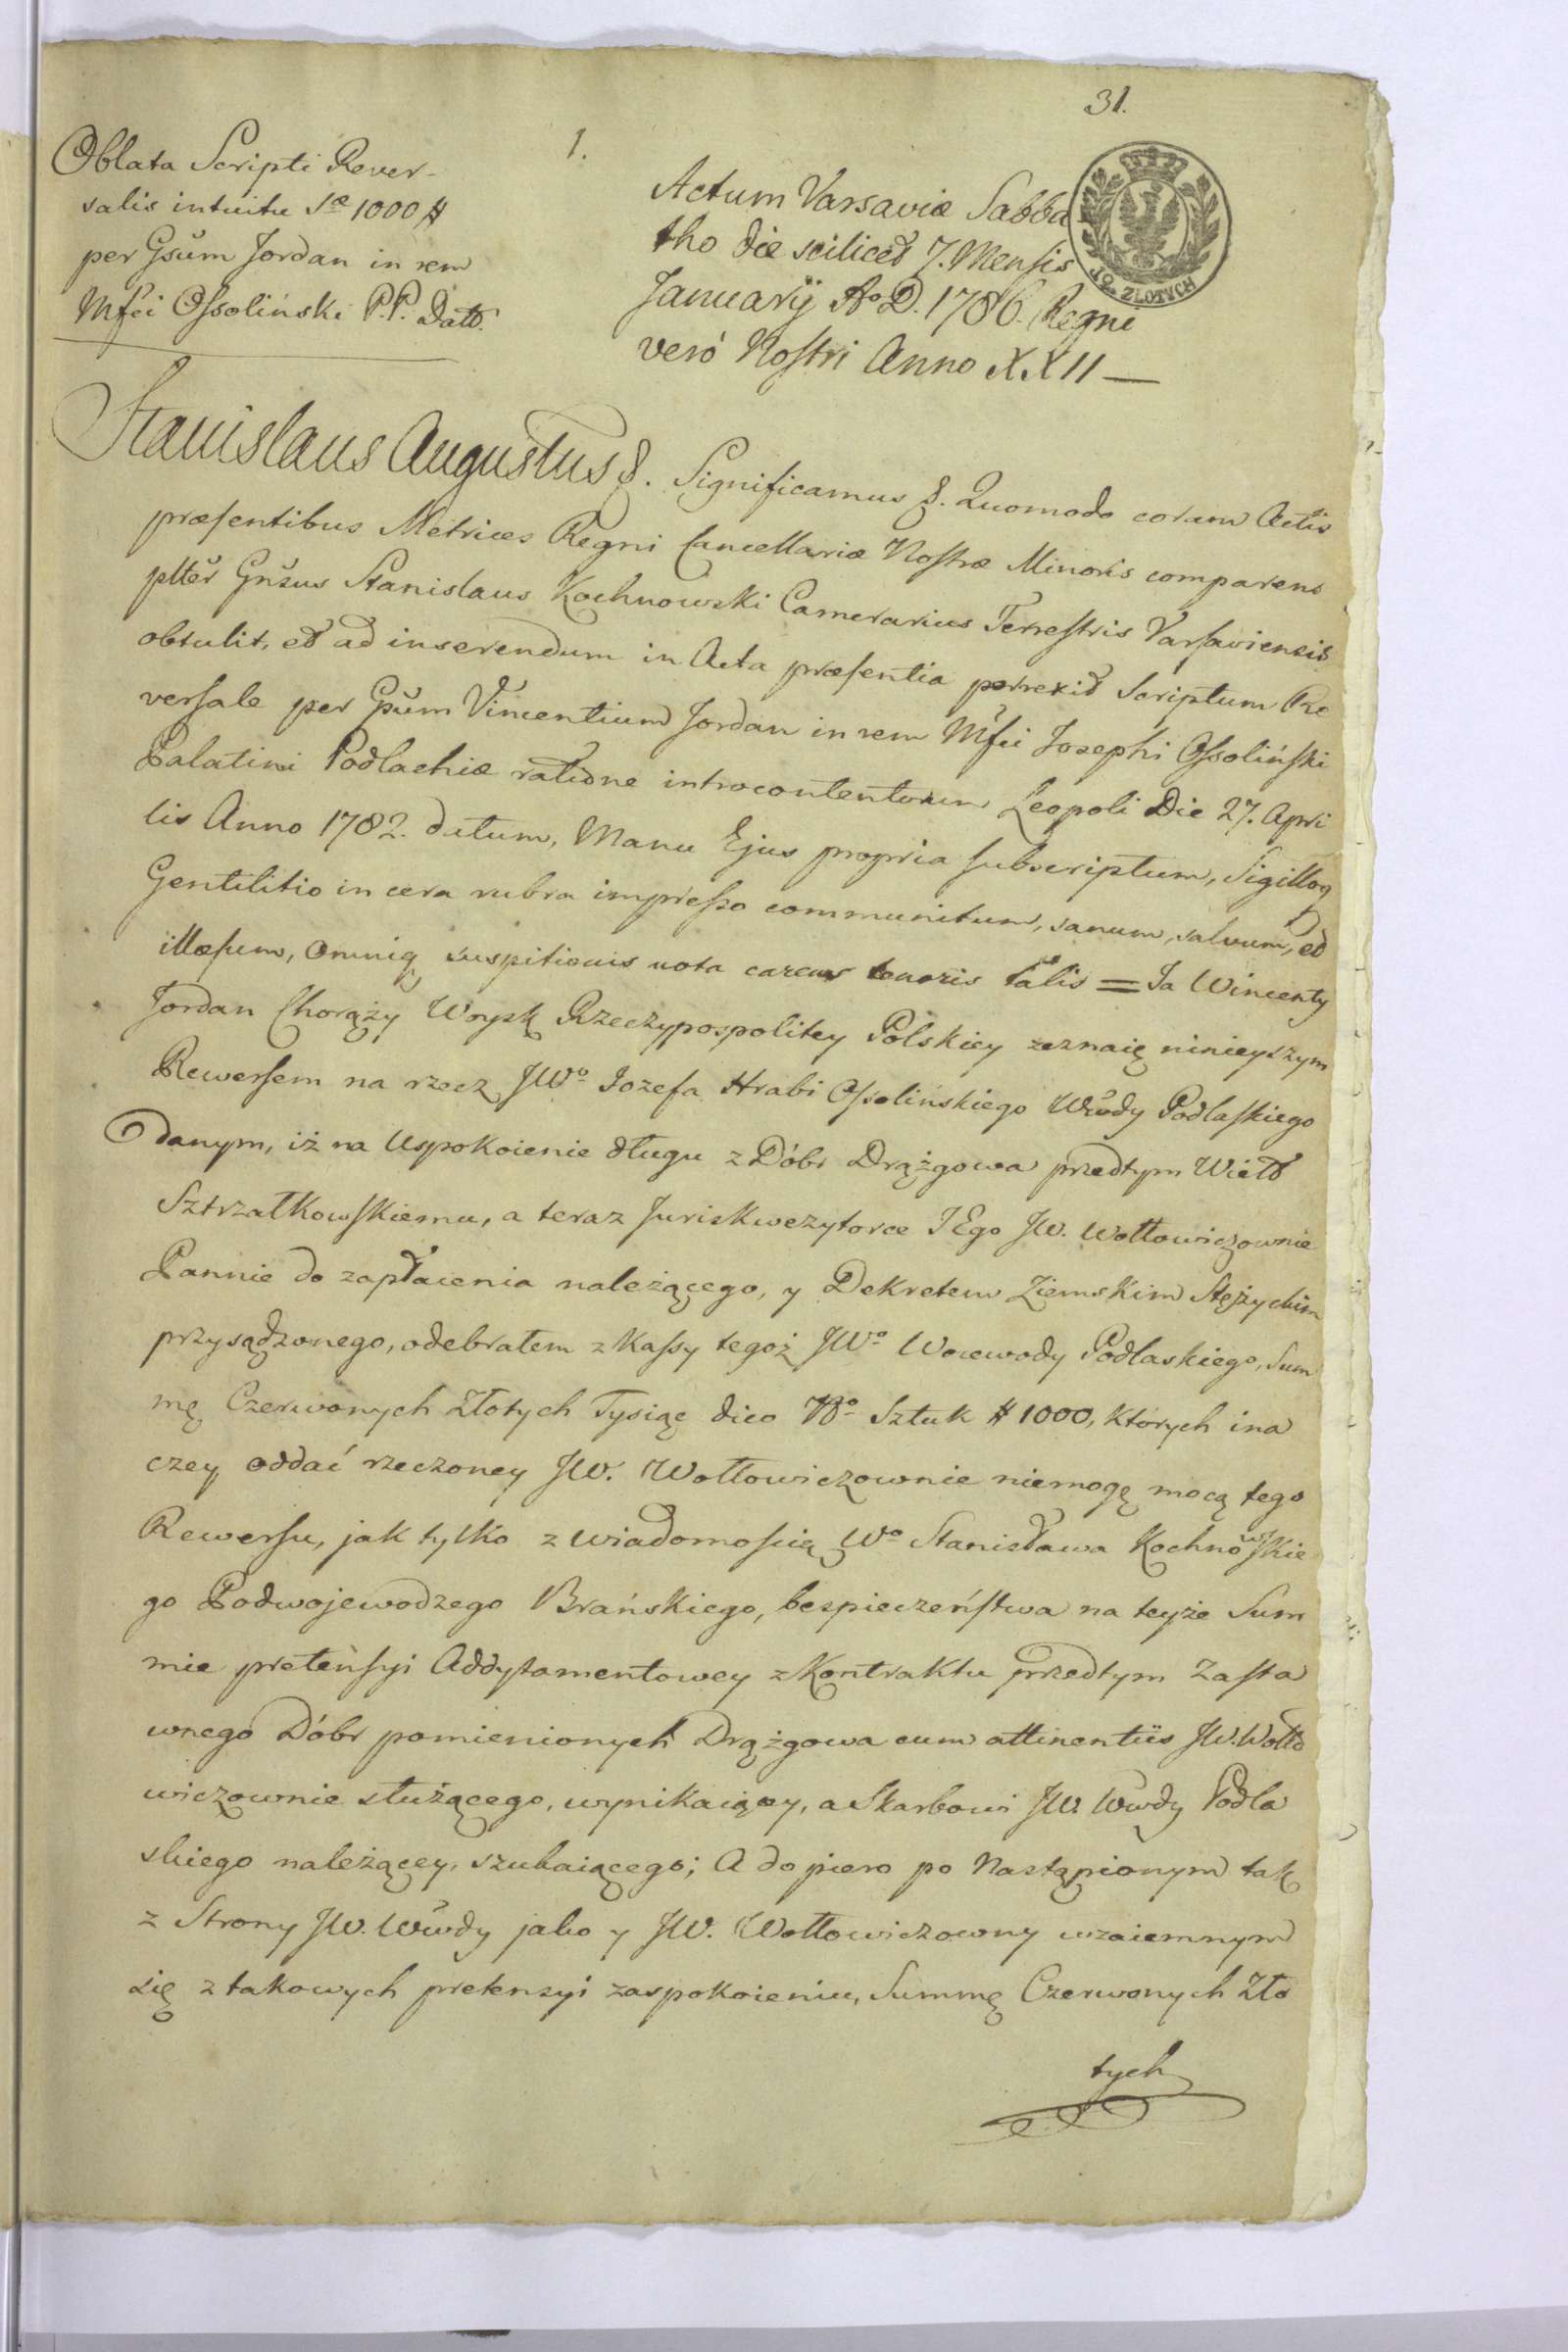 31.
1.
Oblata Scripti Rever-
salis intuitu Sæ 1000 #
per Gsum Jordan in rem
Mfci Ossoliński P.P. Datt.
Actum Varsaviæ Sabba
tho die scilicet 7. Mensis
Januarÿ Ao D. 1786. Regni
veró Nostri Anno XXII —
12. ZŁOTYCH
Stanislaus Augustus &. Significamus &. Quomodo coram Actis
præsentibus Metrices Regni Cancellariæ Nostræ Minoris comparens
plter Gnsus Stanislaus Kochnowski Camerarius Terrestris Varsaviensis
obtulit, et ad inserendum in Acta præsentia porrexit Scriptum Re
versale per Gsum Vincentium Jordan in rem Mfci Josephi Ossoliński
Palatini Podlachiæ ratione introcontentorum Leopoli Die 27. Apri
lis Anno 1782. datum, Manu Ejus propria subscriptum, Sigilloq
Gentilitio in cera rubra impresso communitum, sanum, salvum, et
illæsum, omniq suspitionis nota carens tenoris talis = Ja Wincenty
Jordan Chorąży Woysk Rzeczypospolitey Polskiey zeznaię ninieyszym
Rewersem na rzecz JWo Jozefa Hrabi Ossolińskiego Wdy Podlaskiego
danym, iż na Uspokoienie długu z Dóbr Drążgowa przedtym Wielb
Sztrzałkowskiemu, a teraz Juriskwezytorce JEgo JW. Wołłowiczownie
Pannie do zapłacenia należącego, y Dekretem Ziemskim Stężyckim
przysądzonego, odebrałem z Kassy tegoż JWo Woiewody Podlaskiego, Sum
mę Czerwonych Złotych Tysiąc dico No Sztuk # 1000, których ina
czey oddać rzeczoney JW. Wołłowiczownie niemogę mocą tego
Rewersu, jak tylko z wiadomością Wo Stanisława Kochnowskie
go Podwojewodzego Brańskiego, bespieczeństwa na teyże Sum
mie pretensyi Addytamentowey z Kontraktu przedtym Zasta
wnego Dóbr pomienionych Drążgowa cum attinentiis JW. Wołło
wiczownie służącego, wynikaiącey, a Skarbowi JW. Wwdy Podla
skiego należącey, szukaiącego; A dopiero po Nastąpionym tak
z Strony JW. Wwdy jako y JW. Wołłowiczowny wzaiemnym
się z takowych pretensyi zaspokoieniu, Summę Czerwonych Zło
tych